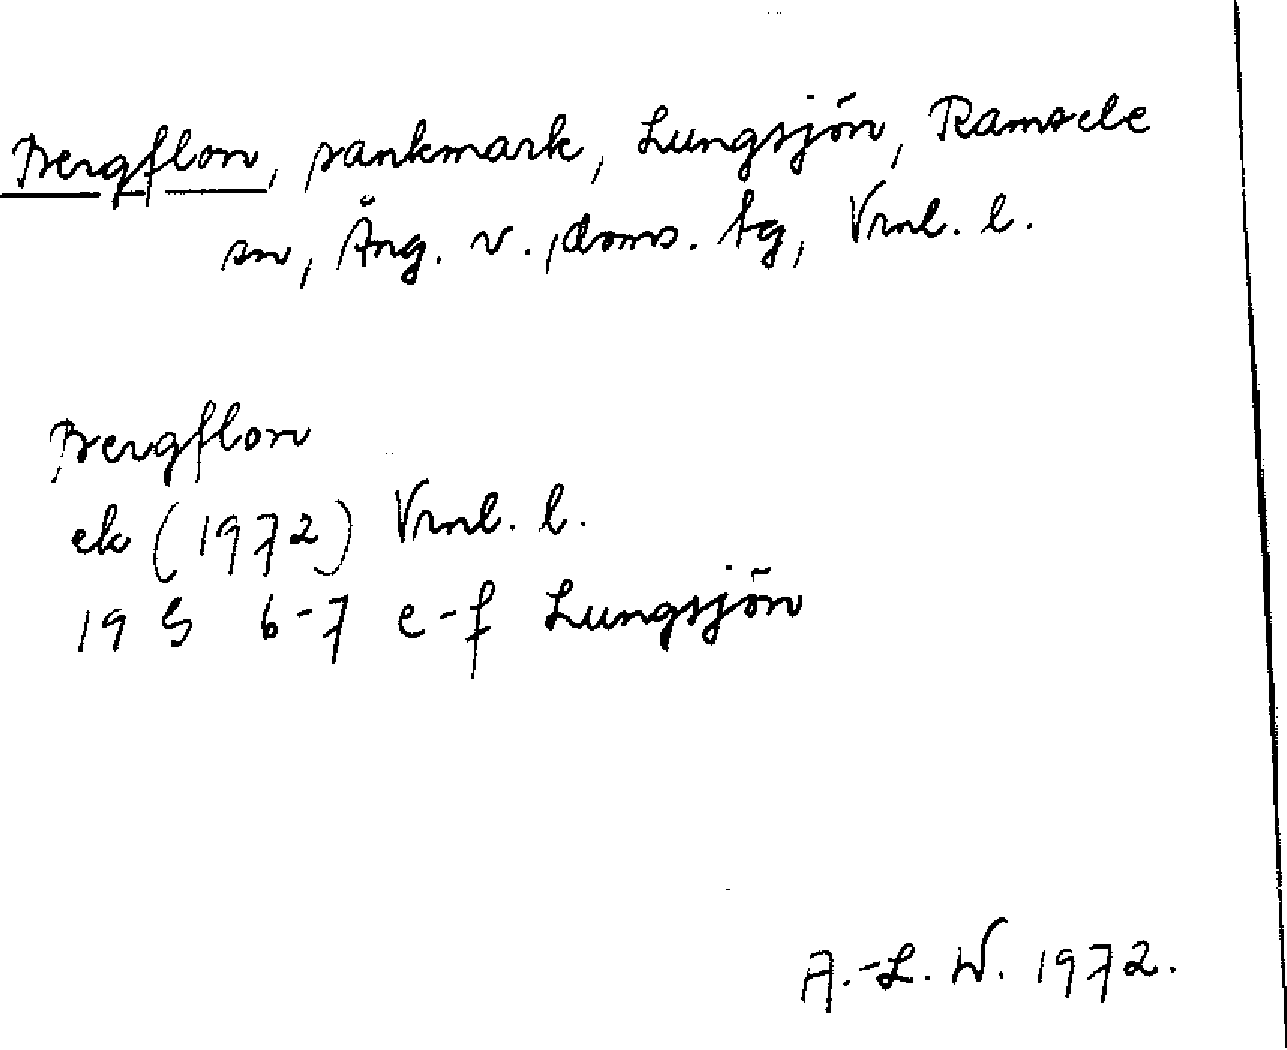 Bergflon, sankmark, Lungsjön, Ramsele
sn, Äng. v. doms. tg, Vml. l.
Bergflon
ek (1972) Vml. l.
19 G 6-7 e-f Lungsjön
A.-L. W. 1972.